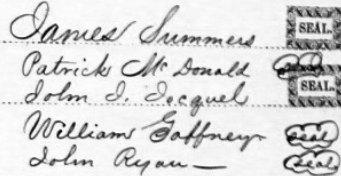 James Summers SEAL.
Patrick McDonald seal
John J. Jecquel SEAL.
William Gaffney seal
John Ryan — seal